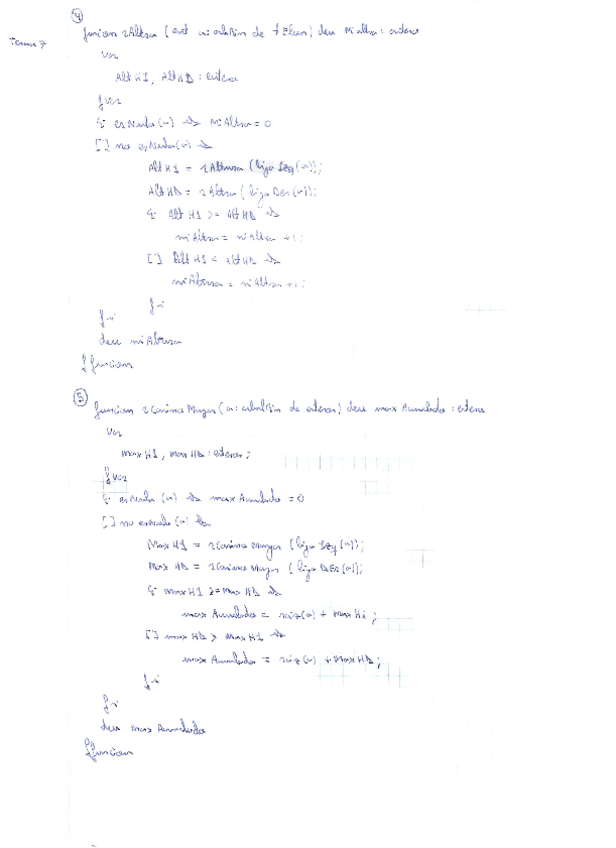 Tema 7
④
funcion iAltura (ent a: arbolBin de tElem) dev miAltura: entero
var
AltHI, AltHD: entero
fvar
si esNulo(a) → miAltura = 0
[] no esNulo(a) →
AltHI = iAltura (hijo Izq(a));
AltHD = iAltura (hijo Der(a));
si AltHI >= AltHD →
miAltura = miAltura +1;
[] AltHI < AltHD →
miAltura = miAltura +1;
fsi
fsi
dev miAltura
ffuncion
⑤
funcion iCaminoMayor (a: arbolBin de enteros) dev maxAcumulado: entero
var
maxHI, maxHD: enteros;
fvar
si esNulo (a) → maxAcumulado = 0
[] no esNulo(a) →
MaxHI = iCaminoMayor (hijo Izq(a));
MaxHD = iCaminoMayor (hijo Der(a));
si maxHI >= MaxHD →
maxAcumulado = raiz(a) + MaxHi;
[] maxHD > MaxHI →
maxAcumulado = raiz(a) + MaxHD;
fsi
fsi
dev maxAcumulado
ffuncion